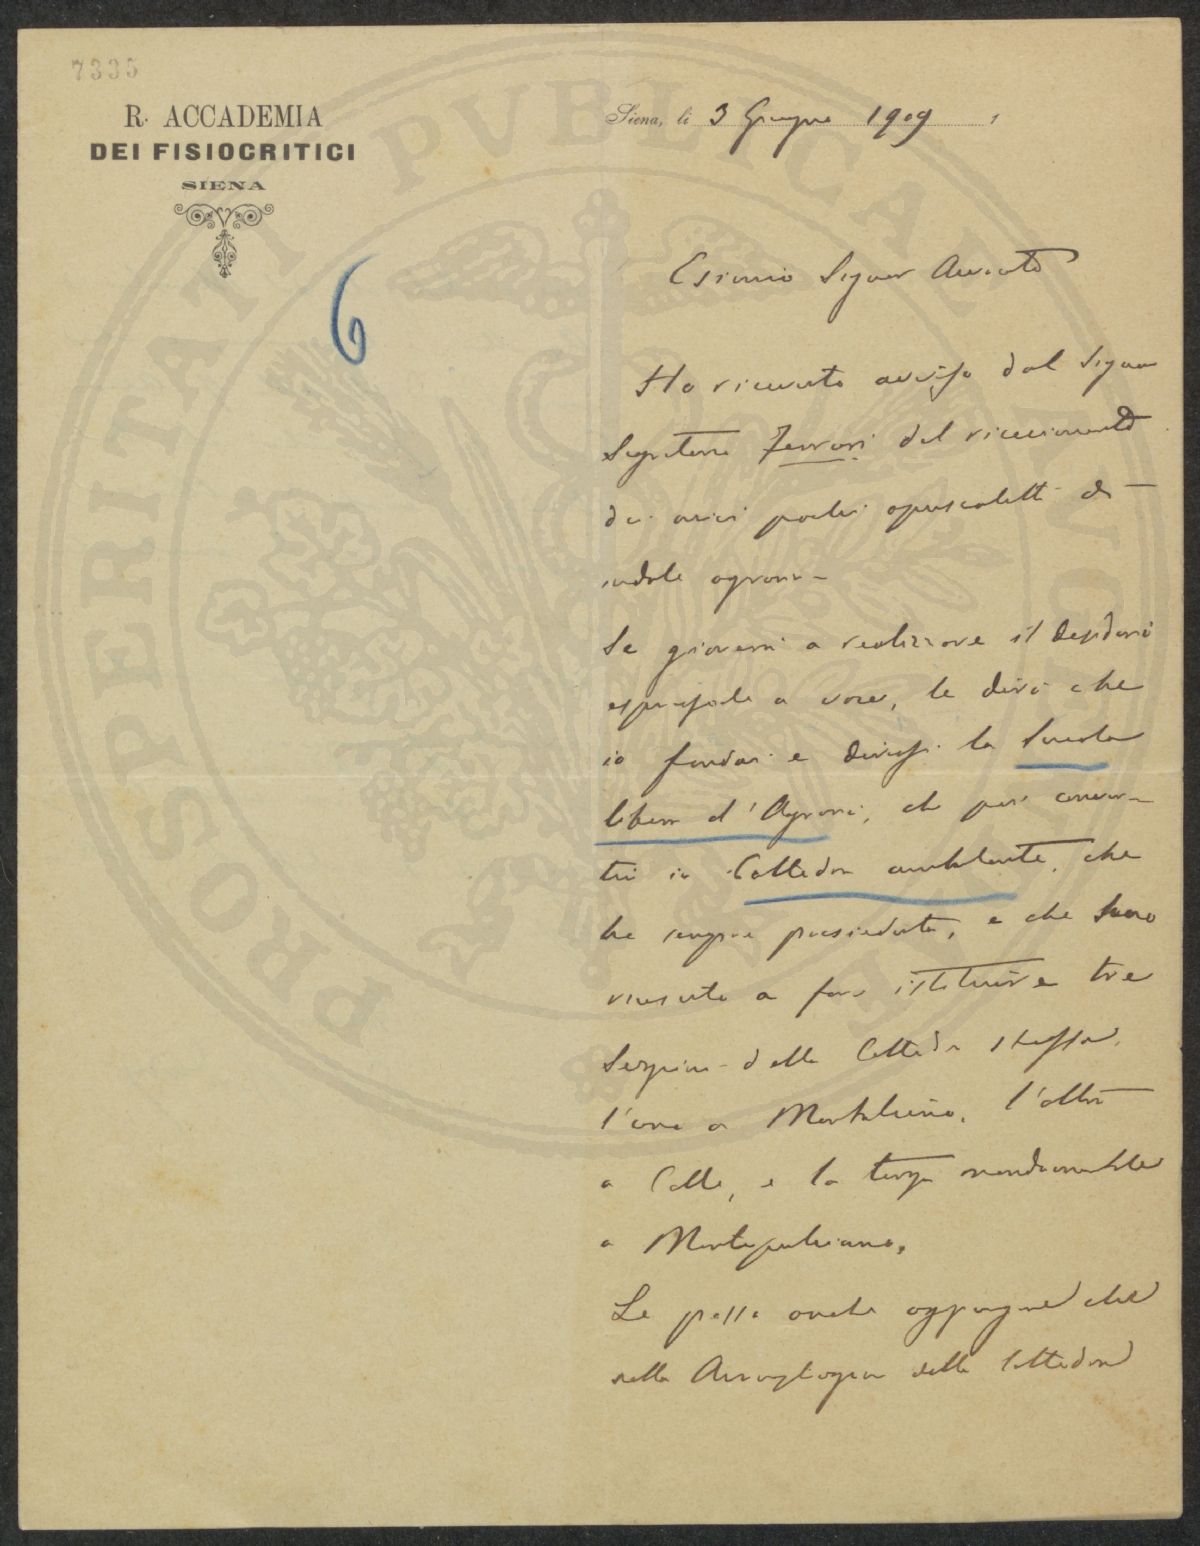 7335
R. ACCADEMIA
DEI FISIOCRITICI
SIENA
Siena, li 3 Giugno 1909
6
Esimio Signor Avvocato
Ho ricevuto avviso dal Signor
Segretario Ferrari del ricevimento
dei miei pochi opuscoletti di
indole agraria
Se gioverà a realizzare il desiderio
a voce, le dirò che
io fondai e diressi la Scuola
libera d'Agraria, che poi conver-
tii in Cattedra ambulante, che
ho sempre presieduta, e che sono
riuscito a fare istituire tre
Sezioni della Cattedra stessa,
l'una a Montalcino, l'altra
a Colle, e la terza
a Montepulciano.
Le posso anche aggiungere che
nella delle Cattedre
PROSPERITATI PVBLICAE AVGENDAE